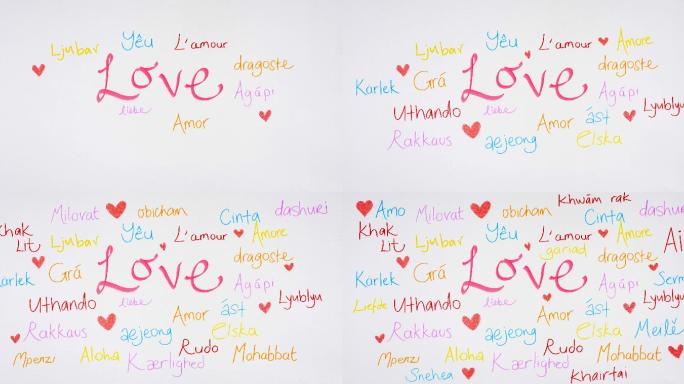 Ljubav Yêu L'amour
Love dragoste
liebe Agápi
Amor
Ljubav Yêu L'amour Amore
Karlek Grá Love dragoste
Uthando liebe Agápi Lyublyu
Rakkaus aejeong Amor ást elska
Milovat obicham Cinta dashuri
Khak Lit Ljubav Yêu L'amour Amore
Karlek Grá Love dragoste
Uthando liebe Agápi Lyublyu
Rakkaus aejeong Amor ást elska
Mpenzi Aloha Kærlighed Rudo Mohabbat
Khwām rak
Amo Milovat obicham Cinta dashuri
Khak Lit Ljubav Yêu L'amour gariad Amore Ai
Karlek Grá Love dragoste
Liefde Uthando liebe Agápi Lyublyu
Rakkaus aejeong Amor ást elska
Mpenzi Aloha Kærlighed Rudo Mohabbat
Snehea Khairtai